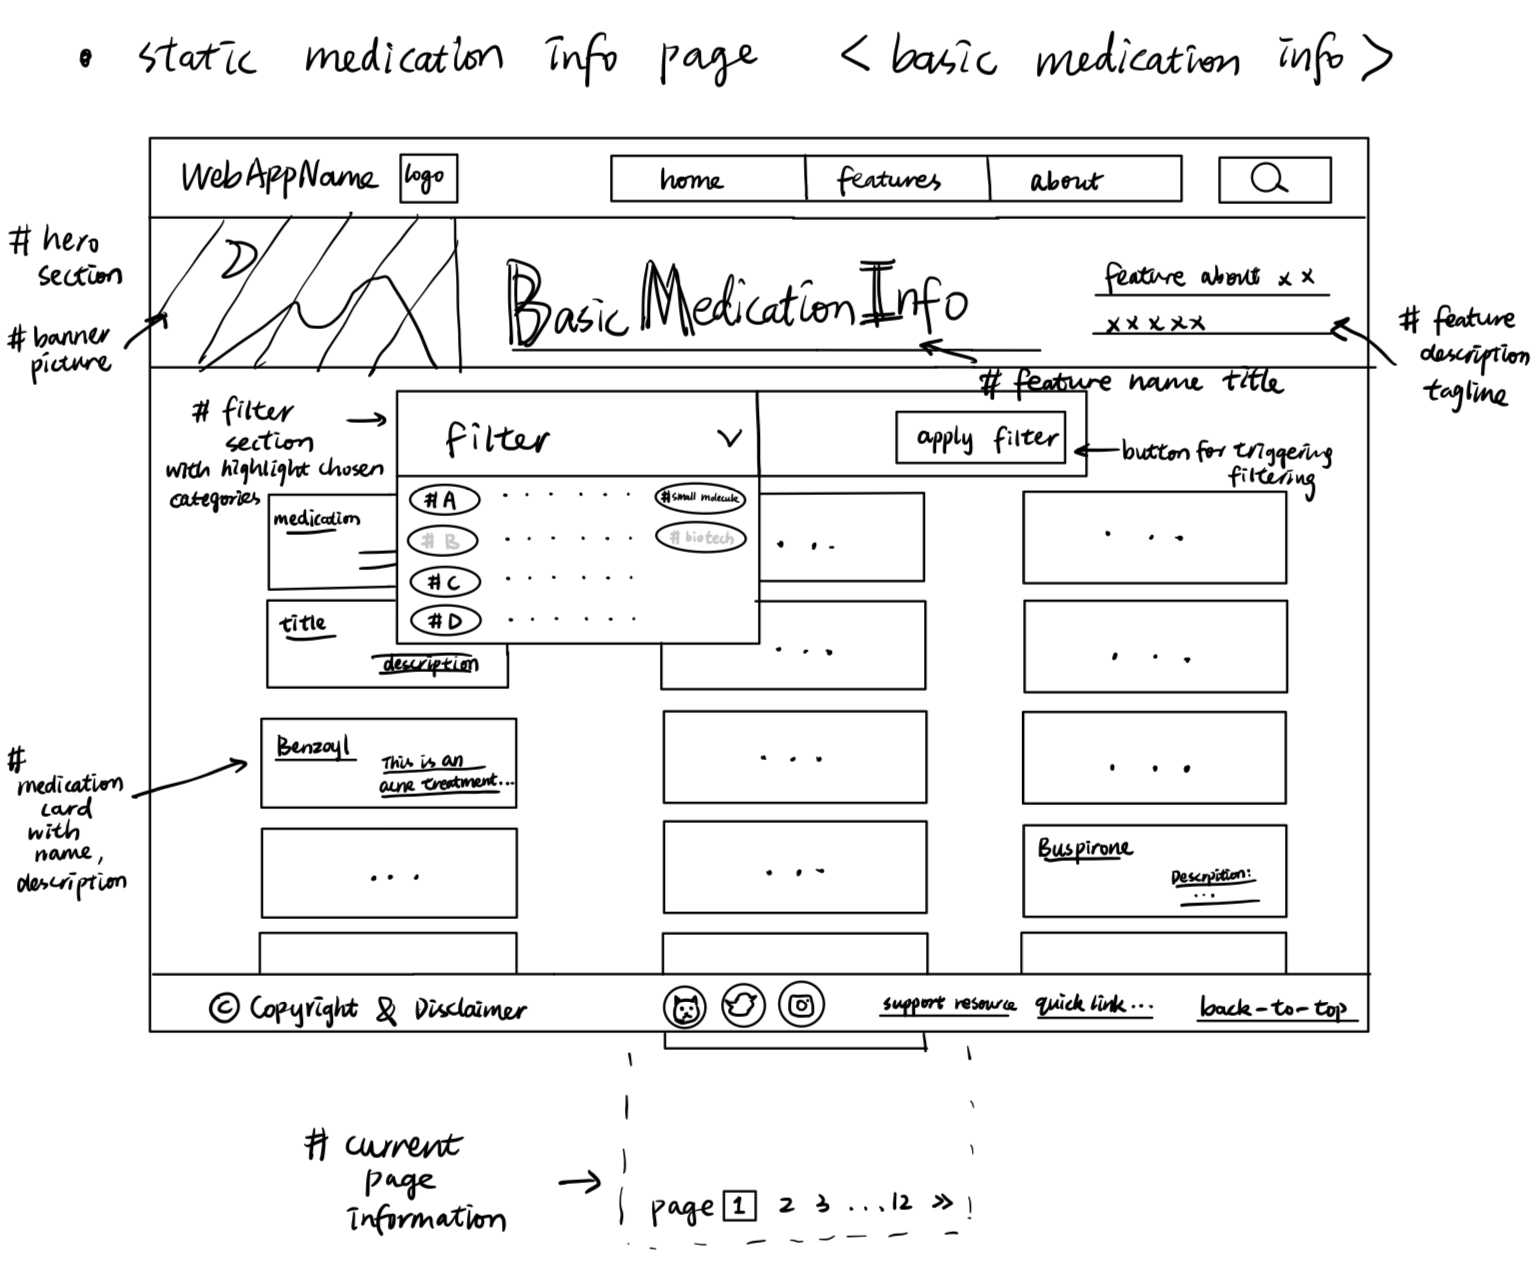 • static medication info page <basic medication info>
WebAppName logo home features about
# hero
section
# banner
picture
Basic Medication Info
feature about x x
x x x x x
# feature
description
tagline
# feature name title
# filter
section
with highlight chosen
categories
filter
apply filter
button for triggering
filtering
#A . . . . . . #small molecule
# B . . . . . . # biotech
#C . . . . . .
#D . . . . . .
medication
. . .
. . .
title
description
. . .
. . .
#
medication
card
with
name,
description
Benzoyl
This is an
acne treatment...
. . .
. . .
. . .
. . .
Buspirone
Descrpition:
...
© Copyright & Disclaimer support resource quick link... back-to-top
# current
page
information
page 1 2 3 ...12 »